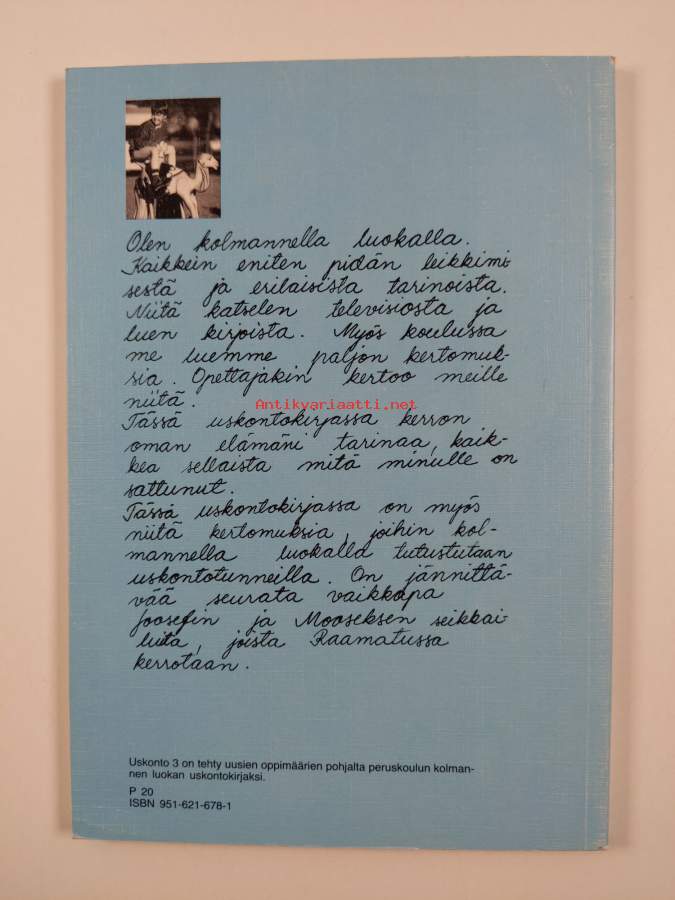 Olen kolmannella luokalla.
Kaikkein eniten pidän leikkimi-
sestä ja erilaisista tarinoista.
Niitä katselen televisiosta ja
luen kirjoista. Myös koulussa
me luemme paljon kertomuk-
sia. Opettajakin kertoo meille
niitä.
Antikvariaatti.net
Tässä uskontokirjassa kerron
oman elämäni tarinaa, kaik-
kea sellaista mitä minulle on
sattunut.
Tässä uskontokirjassa on myös
niitä kertomuksia, joihin kol-
mannella luokalla tutustutaan
uskontotunneilla. On jännittä-
vää seurata vaikkapa
Joosefin ja Mooseksen seikkai-
luita, joista Raamatussa
kerrotaan.
Uskonto 3 on tehty uusien oppimäärien pohjalta peruskoulun kolman-
nen luokan uskontokirjaksi.
P 20
ISBN 951-621-678-1